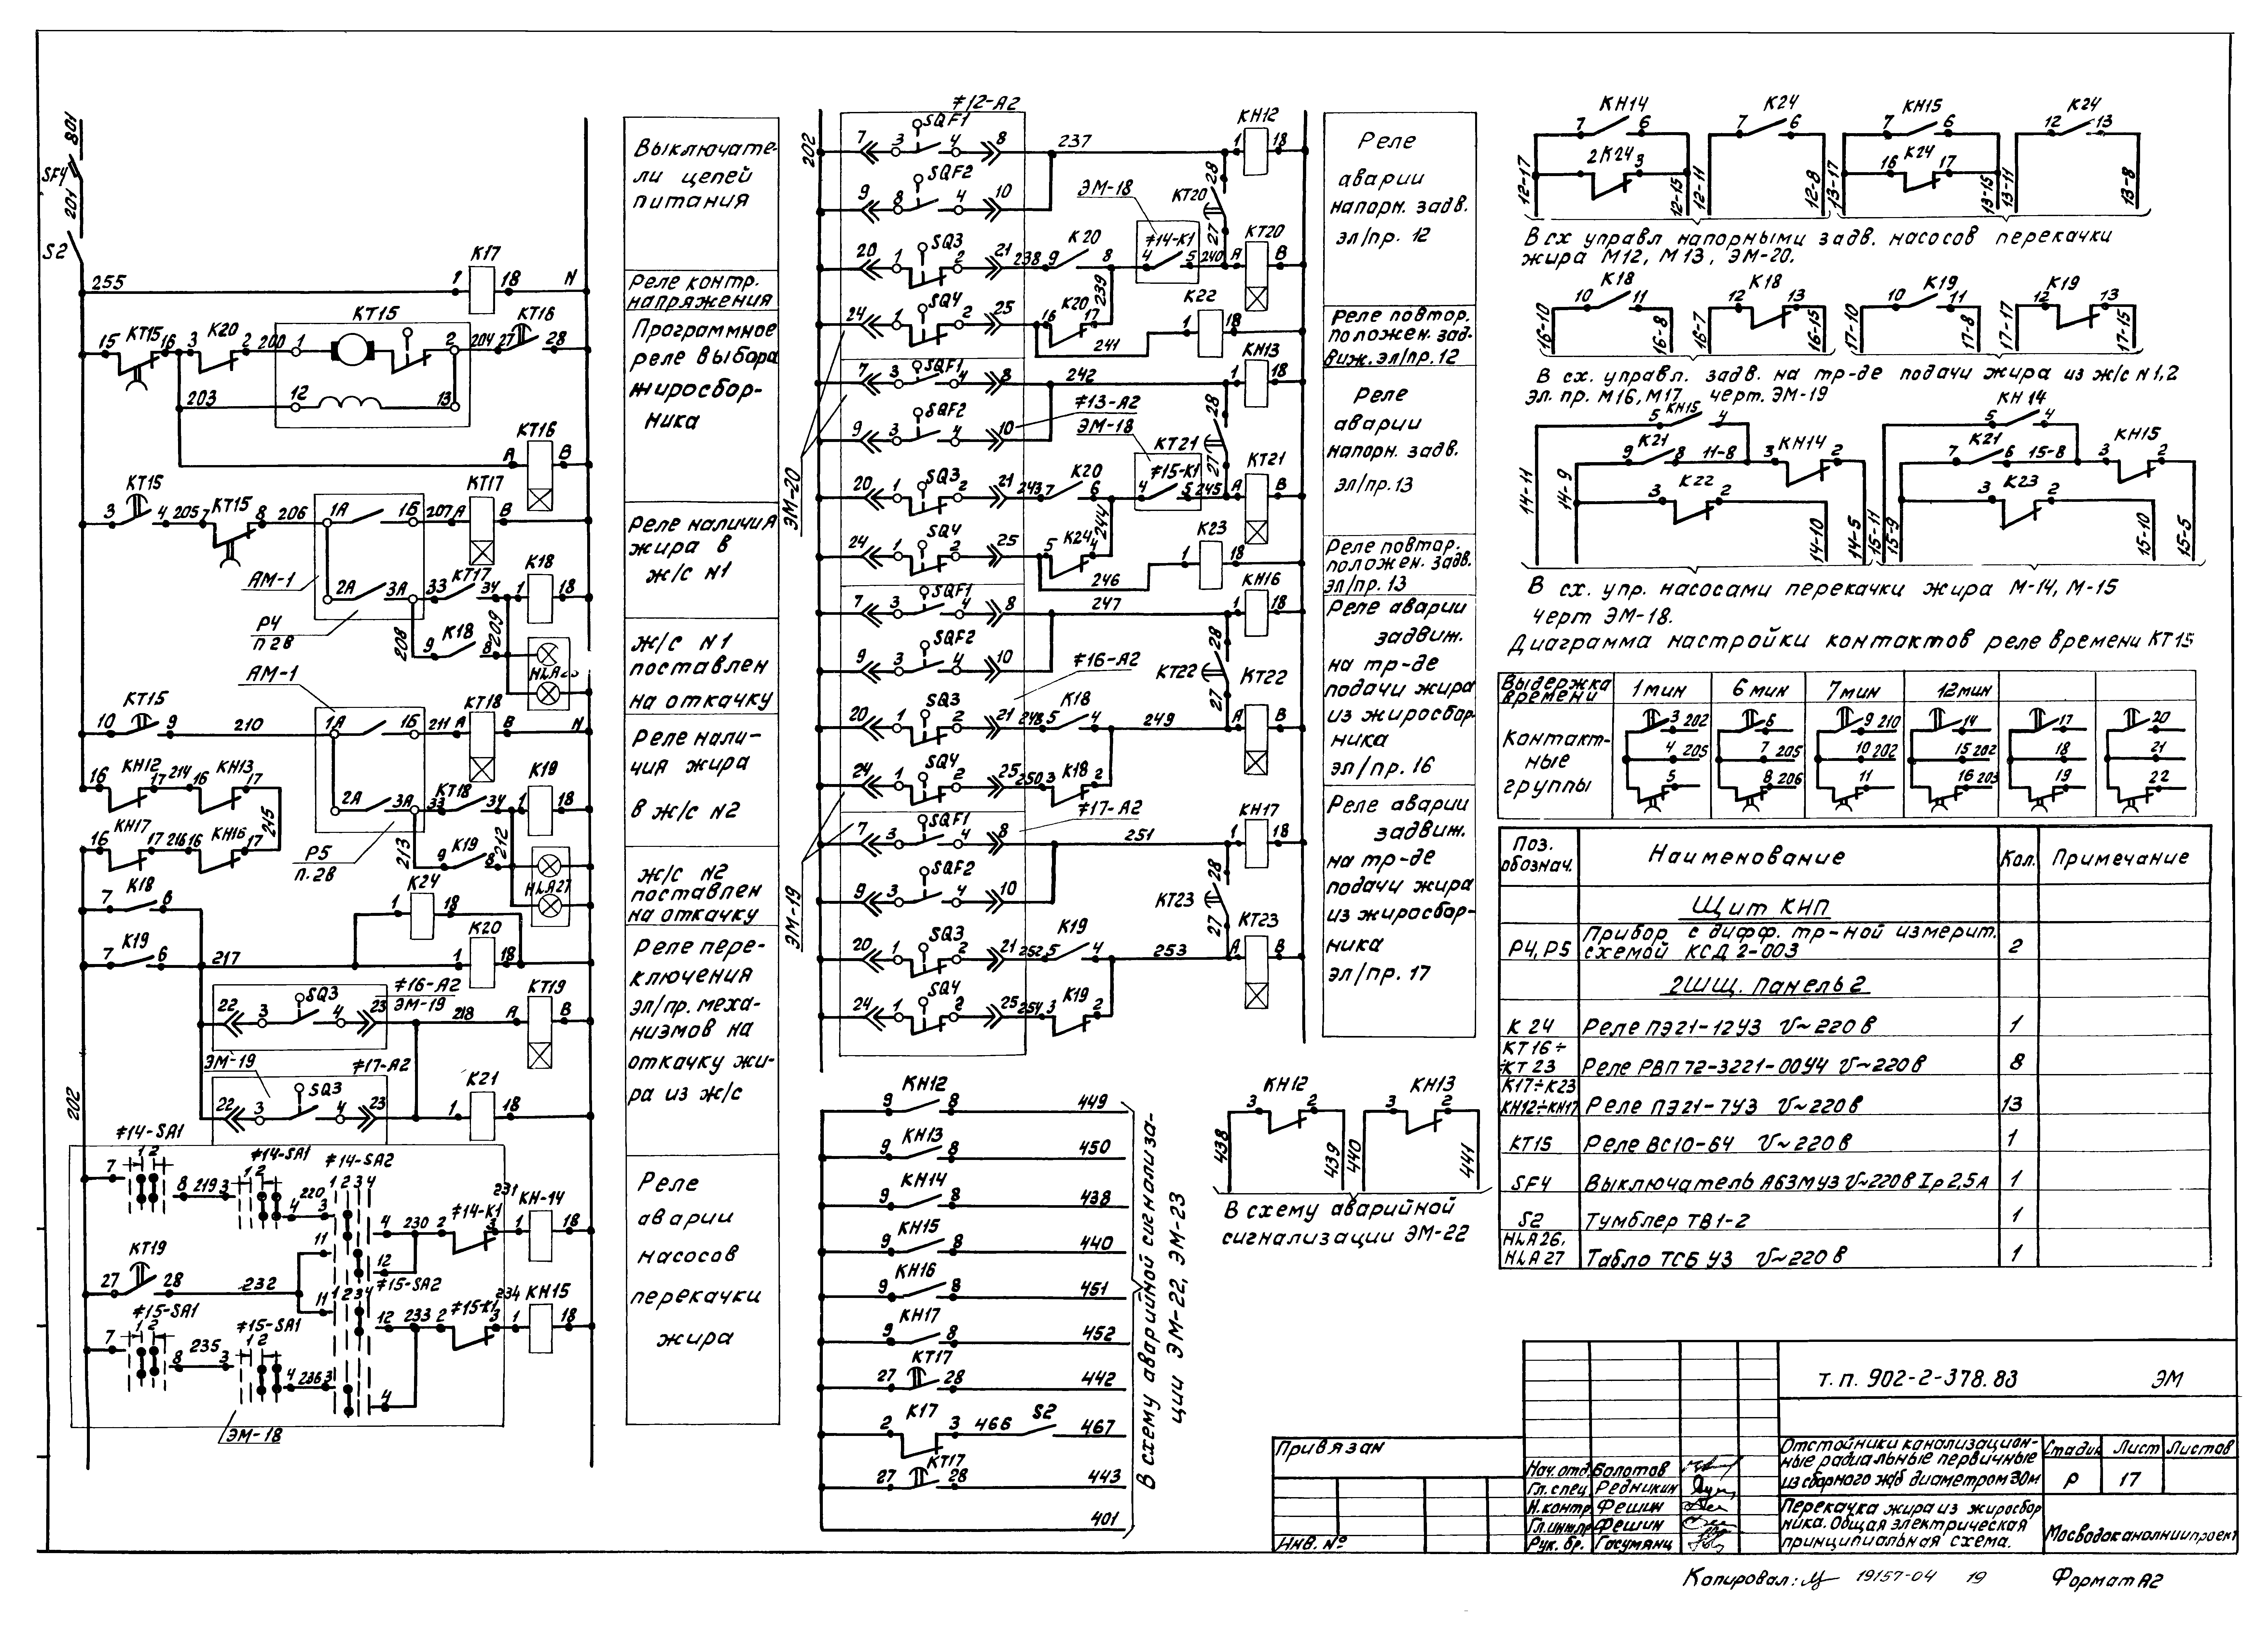 801
SF4
201
S2
255
1 К17 18 N
15 КТ15 16 3 К20 2 200 1 КТ15 2 204 27 КТ16 28
203 12 13
КТ16
А В
3 КТ15 4 205 7 КТ15 8 206 1А 1Б 207 А КТ17 В
АМ-1
2А 3А 33 КТ17 34 1 К18 18
Р4
п 2В
208 9 К18 8 209
АМ-1
10 КТ15 9 210 1А 1Б 211 А КТ18 В N
16 КН12 17 214 16 КН13 17
2А 3А 33 КТ18 34 1 К19 18
215
16 КН17 17 216 16 КН16 17
Р5
п. 2В
213 9 К19 8 212
HLA27
7 К18 6
1 К24 18
7 К19 6 217 1 К20 18
22 3 SQ3 4 23 ≠16-А2
ЭМ-19
218 А КТ19 В
ЭМ-19 ≠17-А2
22 3 SQ3 4 23 1 К21 18
202
≠14-SA1
7 1 2 8 219 3 ≠14-SA1 1 2 4 220 3 ≠14-SA2 1 2 3 4
4 230 2 ≠14-К1 3 231 1 КН-14 18
11 12
27 КТ19 28 232
≠15-SA2
11 1 2 3 4 12 233 2 ≠15-К1 3 234 1 КН15 18
≠15-SA1
7 1 2 8 235 3 ≠15-SA1 1 2 4 236 3 4
ЭМ-18
Выключате-
ли цепей
питания
Реле контр.
напряжения
Программное
реле выбора
жиросбор-
ника
Реле наличия
жира в
ж/с N1
Ж/с N1
поставлен
на откачку
Реле нали-
чия жира
в ж/с N2
Ж/с N2
поставлен
на откачку
Реле пере-
ключения
эл/пр. меха-
низмов на
откачку жи-
ра из ж/с
Реле
аварии
насосов
перекачки
жира
≠12-А2
202
7 3 SQF1 4 8 237 1 КН12 18
9 8 SQF2 4 10 ЭМ-18 КТ20 28
20 1 SQ3 2 21 238 9 К20 8 4 ≠14-К1 5 240 27 А КТ20 В
24 1 SQ4 2 25 16 К20 17 239 1 К22 18
241
7 3 SQF1 4 8 242 1 КН13 18
9 3 SQF2 4 10 ≠13-А2
ЭМ-18 КТ21 28
ЭМ-20
20 1 SQ3 2 21 243 7 К20 6 4 ≠15-К1 5 245 27 А КТ21 В
24 1 SQ4 2 25 5 К24 4 244 1 К23 18
246
7 3 SQF1 4 8 247 1 КН16 18
9 3 SQF2 4 10 ≠16-А2 КТ22 28
20 1 SQ3 2 21 248 5 К18 4 249 27 А КТ22 В
24 1 SQ4 2 25 250 3 К18 2
≠17-А2
7 3 SQF1 4 8 251 1 КН17 18
9 3 SQF2 4 10 КТ23 28
ЭМ-19
20 1 SQ3 2 21 252 5 К19 4 253 27 А КТ23 В
24 1 SQ4 2 25 254 3 К19 2
Реле
аварии
напорн. задв.
эл/пр. 12
Реле повтор.
положен. зад-
виж. эл/пр. 12
Реле
аварии
напорн. задв.
эл/пр. 13
Реле повтор.
положен. задв.
эл/пр. 13
Реле аварии
задвиж.
на тр-де
подачи жира
из жиросбор-
ника
эл/пр. 16
Реле аварии
задвиж.
на тр-де
подачи жира
из жиросбор-
ника
эл/пр. 17
9 КН12 8 449
9 КН13 8 450
9 КН14 8 438
9 КН15 8 440
9 КН16 8 451
9 КН17 8 452
27 КТ17 28 442
2 К17 3 466 S2 467
27 КТ17 28 443
401
В схему аварийной сигнализа-
ции ЭМ-22, ЭМ-23
3 КН12 2 3 КН13 2
438 439 440 441
В схему аварийной
сигнализации ЭМ-22
7 КН14 6 7 К24 6 7 КН15 6 12 К24 13
2 К24 3 16 К24 17
12-17 12-15 12-11 12-8 13-17 13-15 13-11 13-8
В сх управл напорными задв. насосов перекачки
жира М12, М13, ЭМ-20.
10 К18 11 12 К18 13 10 К19 11 12 К19 13
16-10 16-8 16-7 16-15 17-10 17-8 17-17 17-15
В сх. управл. задв. на тр-де подачи жира из ж/с N1,2
Эл. пр. М16, М17 черт. ЭМ-19
5 КН15 4 5 КН14 4
9 К21 8 11-8 3 КН14 2 7 К21 6 15-8 3 КН15 2
3 К22 2 3 К23 2
14-11 14-9 14-10 14-5 15-11 15-9 15-10 15-5
В сх. упр. насосами перекачки жира М-14, М-15
черт ЭМ-18.
Диаграмма настройки контактов реле времени КТ15
Выдержка
времени 1мин 6 мин 7мин 12мин
Контакт-
ные
группы
3 202 6 9 210 14 17 20
4 205 7 205 10 202 15 202 18 21
5 8 206 11 16 203 19 22
Поз.
обознач. Наименование Кол. Примечание
Щит КНП
Р4, Р5 Прибор с дифф. тр-ной измерит.
схемой КСД 2-003 2
2ШЩ. Панель 2
К 24 Реле ПЭ21-12У3 U~220 в 1
КТ16÷
КТ 23 Реле РВП 72-3221-00У4 U~220 в 8
К17÷К23
КН12÷КН17 Реле ПЭ21-7У3 U~220 в 13
КТ15 Реле ВС10-64 U~220 в 1
SF4 Выключатель А63МУЗ U~220 в Iр 2,5А 1
S2 Тумблер ТВ1-2 1
HLA26,
HLA 27 Табло ТСБ У3 U~220 в 1
т. п. 902-2-378.83 ЭМ
Привязан
Инв. №
Нач. отд Болотов
Гл. спец Редникин
Н. контр Фешин
Гл. инж.пр Фешин
Рук. бр. Гасумянц
Отстойники канализацион-
ные радиальные первичные
из сборного ж/б диаметром 30м
Стадия Лист Листов
Р 17
Перекачка жира из жиросбор
ника. Общая электрическая
принципиальная схема.
Мосводоканалниипроект
Копировал: 19157-04 19 Формат А2